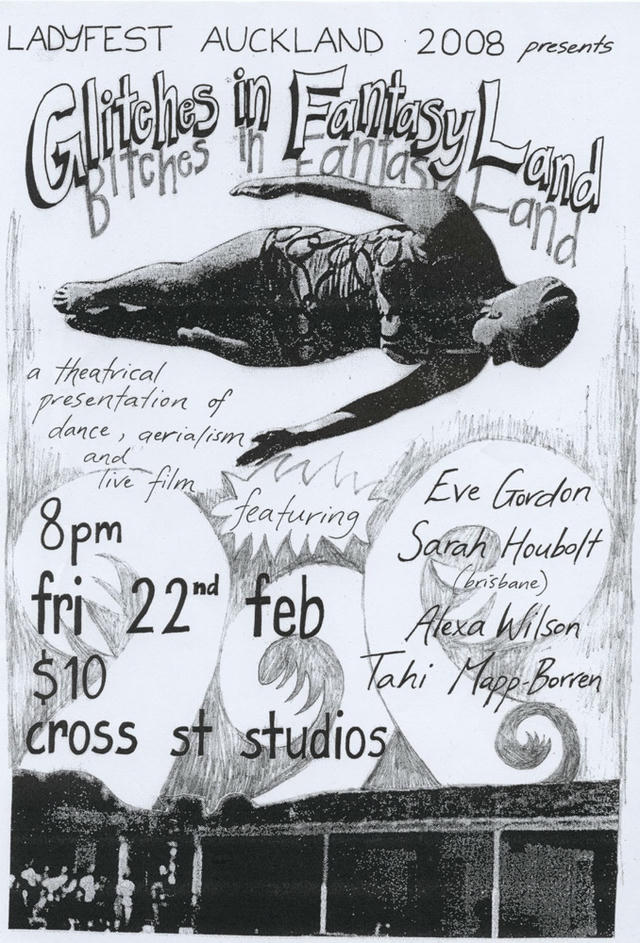 LADYFEST AUCKLAND 2008 presents
Glitches in FantasyLand
Bitches in Fantasy Land
a theatrical
presentation of
dance, aerialism
and
live film
featuring
Eve Gordon
Sarah Houbolt
(brisbane)
Alexa Wilson
Tahi Mapp-Borren
8pm
fri 22nd feb
$10
cross st studios